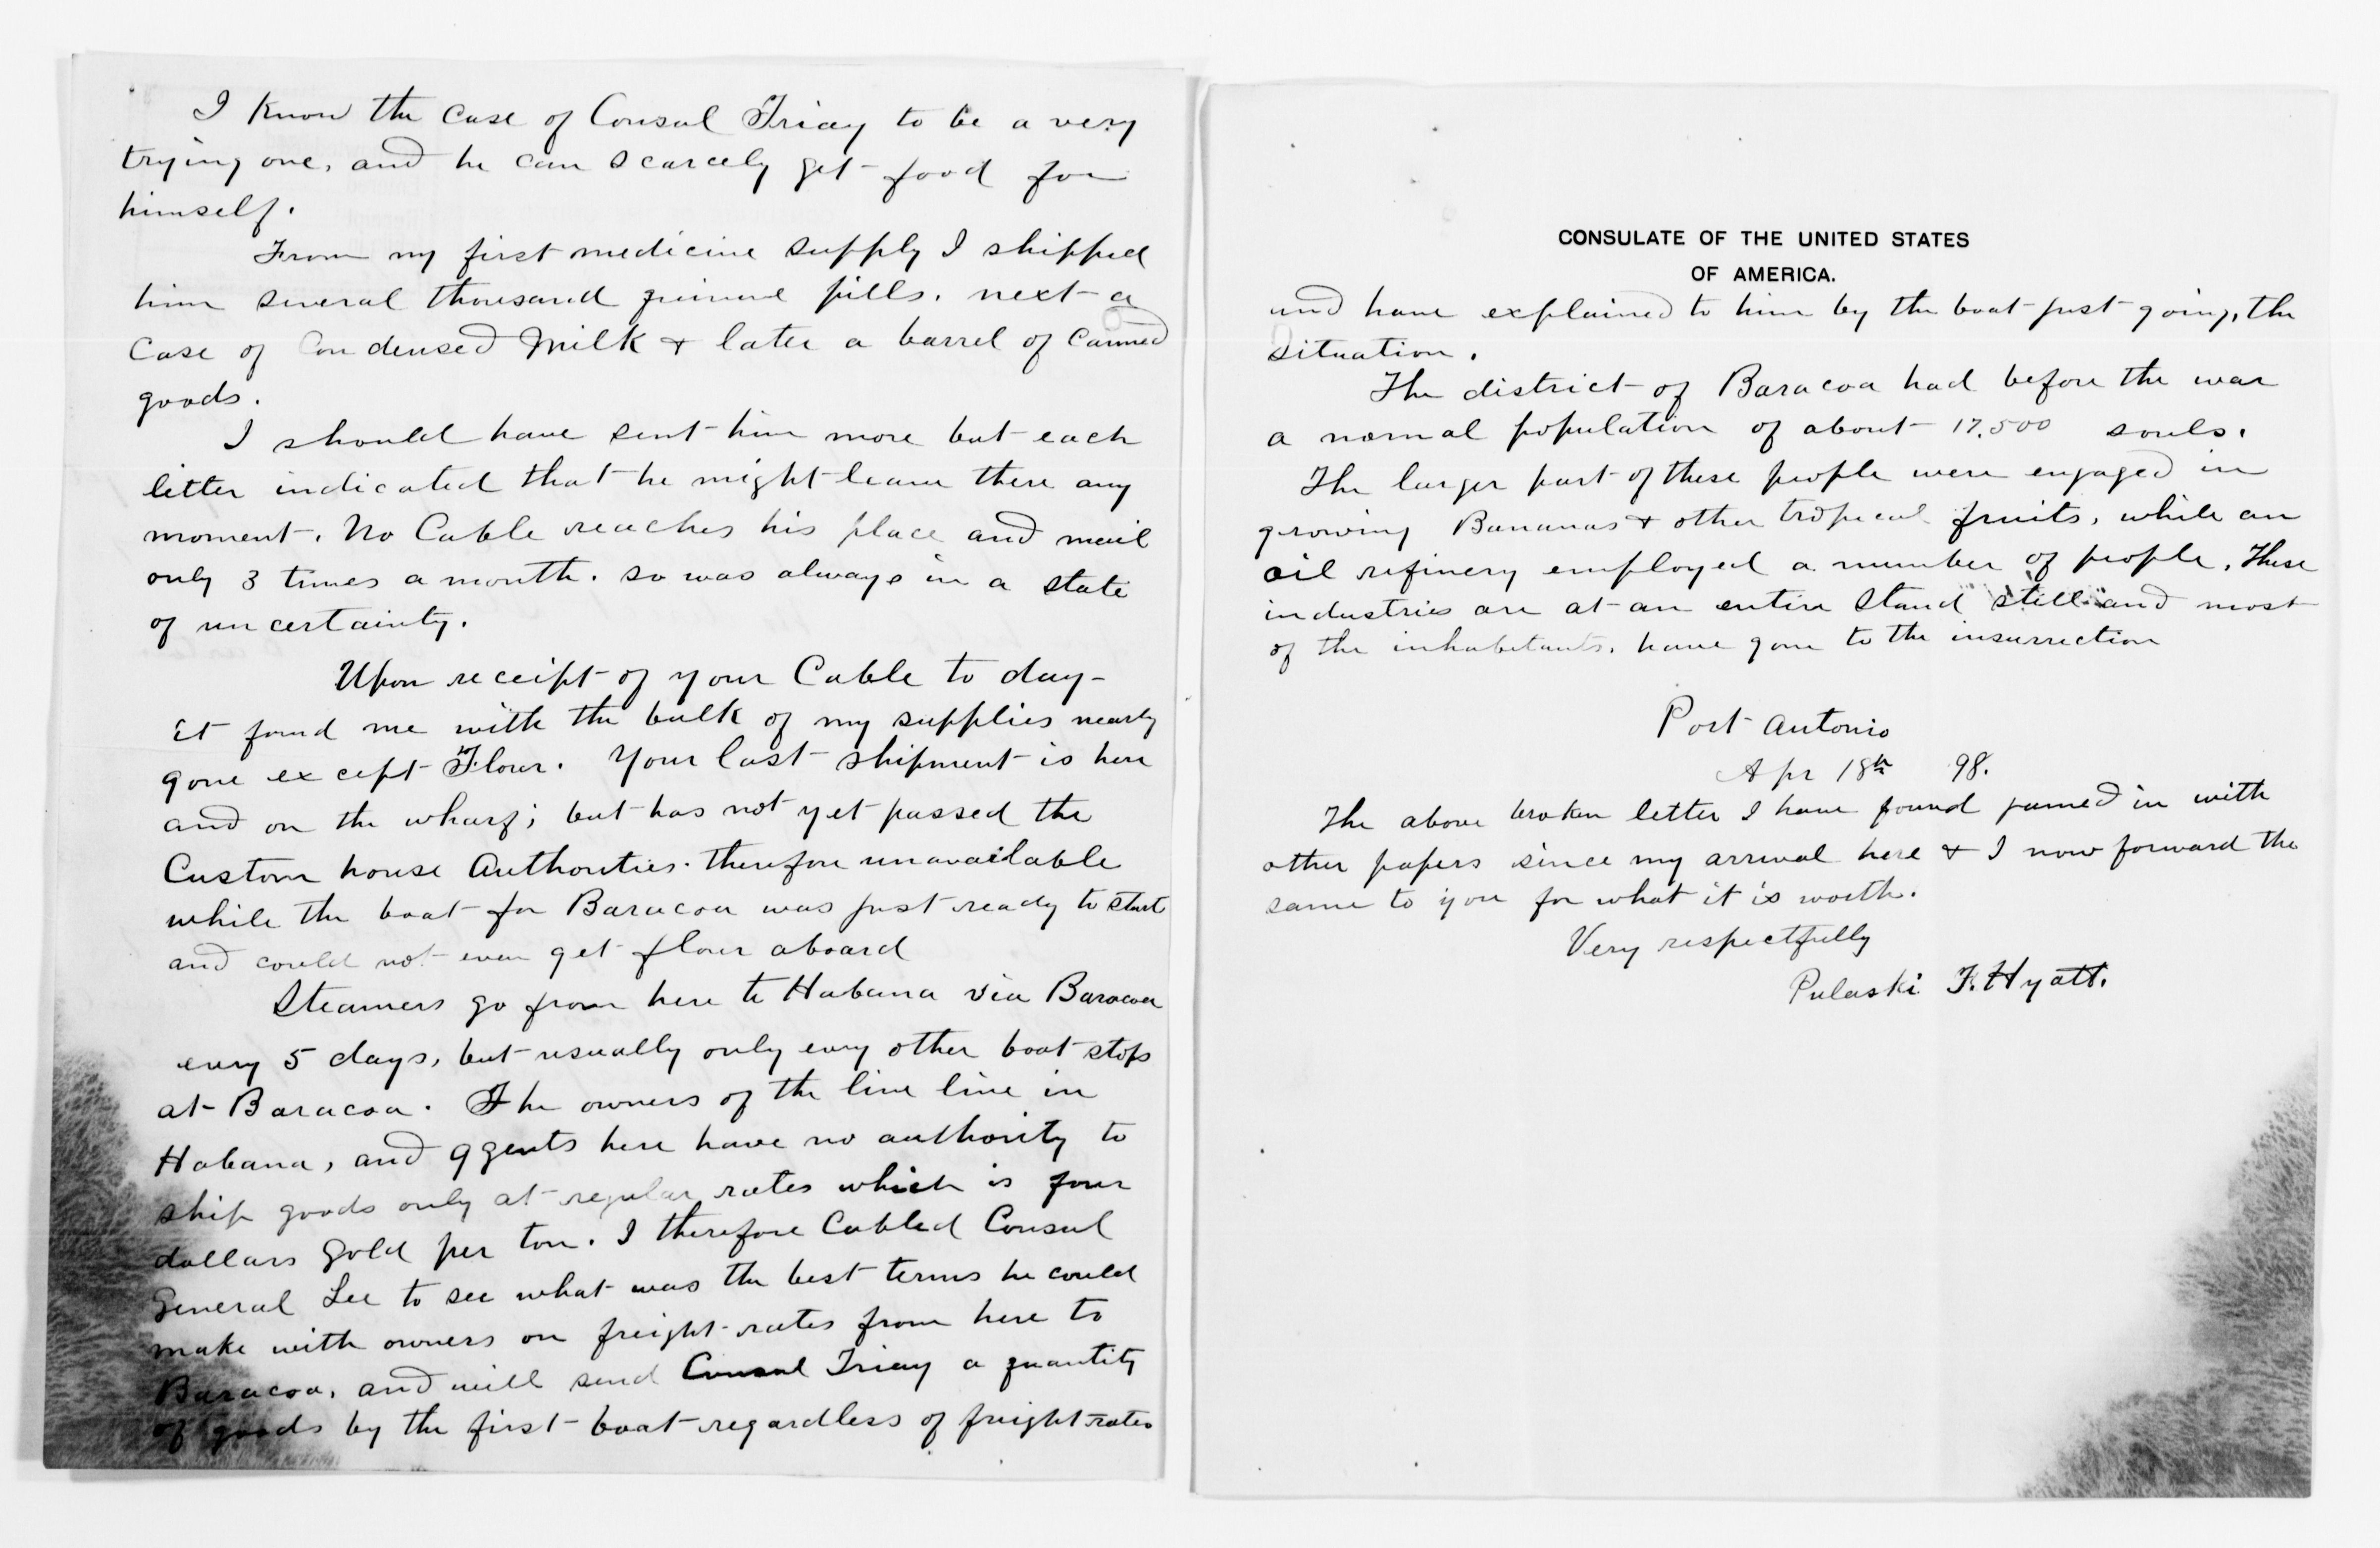 I know the case of Consul Triay to be a very
trying one, and he can scarcely get food for
himself.
From my first medicine supply I shipped
him several thousand quinine pills, next a
case of Condensed Milk & later a barrel of canned
goods.
I should have sent him more but each
letter indicated that he might leave there any
moment. No Cable reaches his place and mail
only 3 times a month. so was always in a state
of uncertainty.
Upon receipt of your Cable to day
it found me with the bulk of my supplies nearly
gone except Flour. Your last shipment is here
and on the wharf; but has not yet passed the
Custom house Authorities. therefore unavailable
while the boat for Baracoa was just ready to start
and could not even get flour aboard
Steamers go from here to Habana via Baracoa
every 5 days, but usually only every other boat stops
at Baracoa. The owners of the line live in
Habana, and agents here have no authority to
ship goods only at regular rates which is four
dollars Gold per ton. I therefore Cabled Consul
General Lee to see what was the best terms he could
make with owners on freight rates from here to
Baracoa, and will send Consul Triay a quantity
of goods by the first boat regardless of freight rates
CONSULATE OF THE UNITED STATES
OF AMERICA.
and have explained to him by the boat just going, the
situation.
The district of Baracoa had before the war
a normal population of about 17,500 souls.
The larger part of these people were engaged in
growing Bananas & other tropical fruits, while an
oil refinery employed a number of people. These
industries are at an entire Stand still and most
of the inhabitants, have gone to the insurrection
Port Antonio
Apr 18th 98.
The above broken letter I have found jamed in with
other papers since my arrival here & I now forward the
same to you for what it is worth.
Very respectfully
Pulaski F. Hyatt.